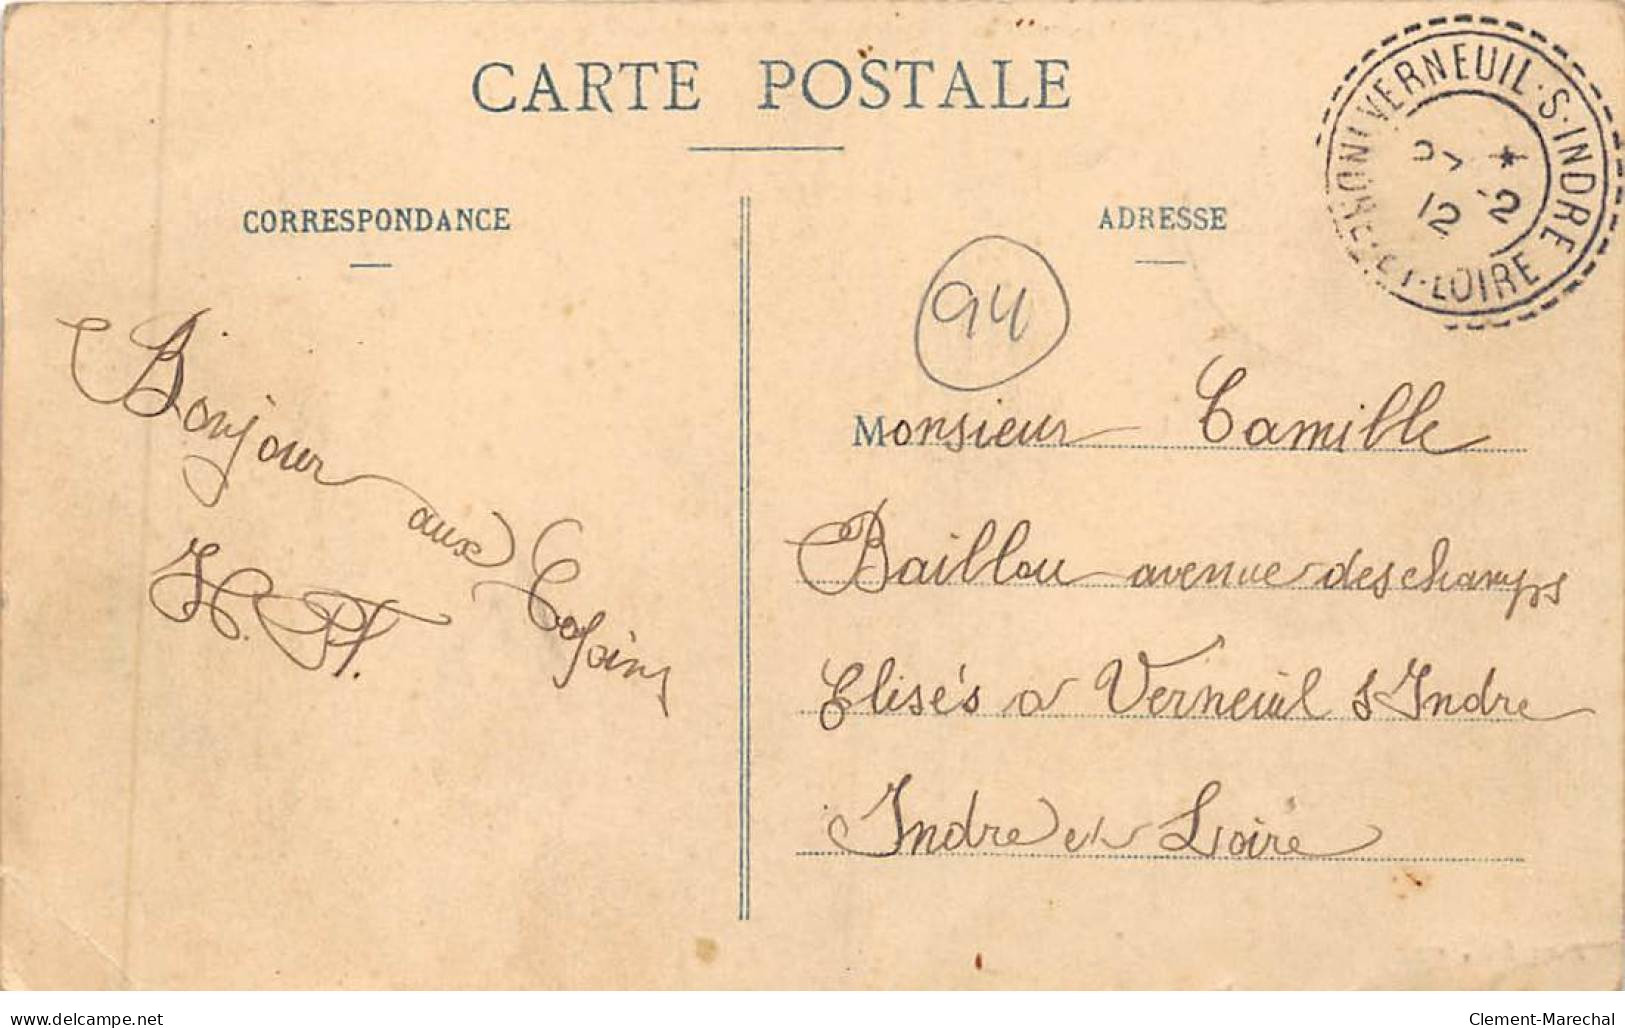 CARTE POSTALE
VERNEUIL-S-INDRE
12 2
ET-LOIRE
CORRESPONDANCE
ADRESSE
94
Bonjour aux Copains
Monsieur Camille
Baillou avenue des champs
Elisés à Verneuil s Indre
Indre et Loire
delcampe.net
Clement-Marechal